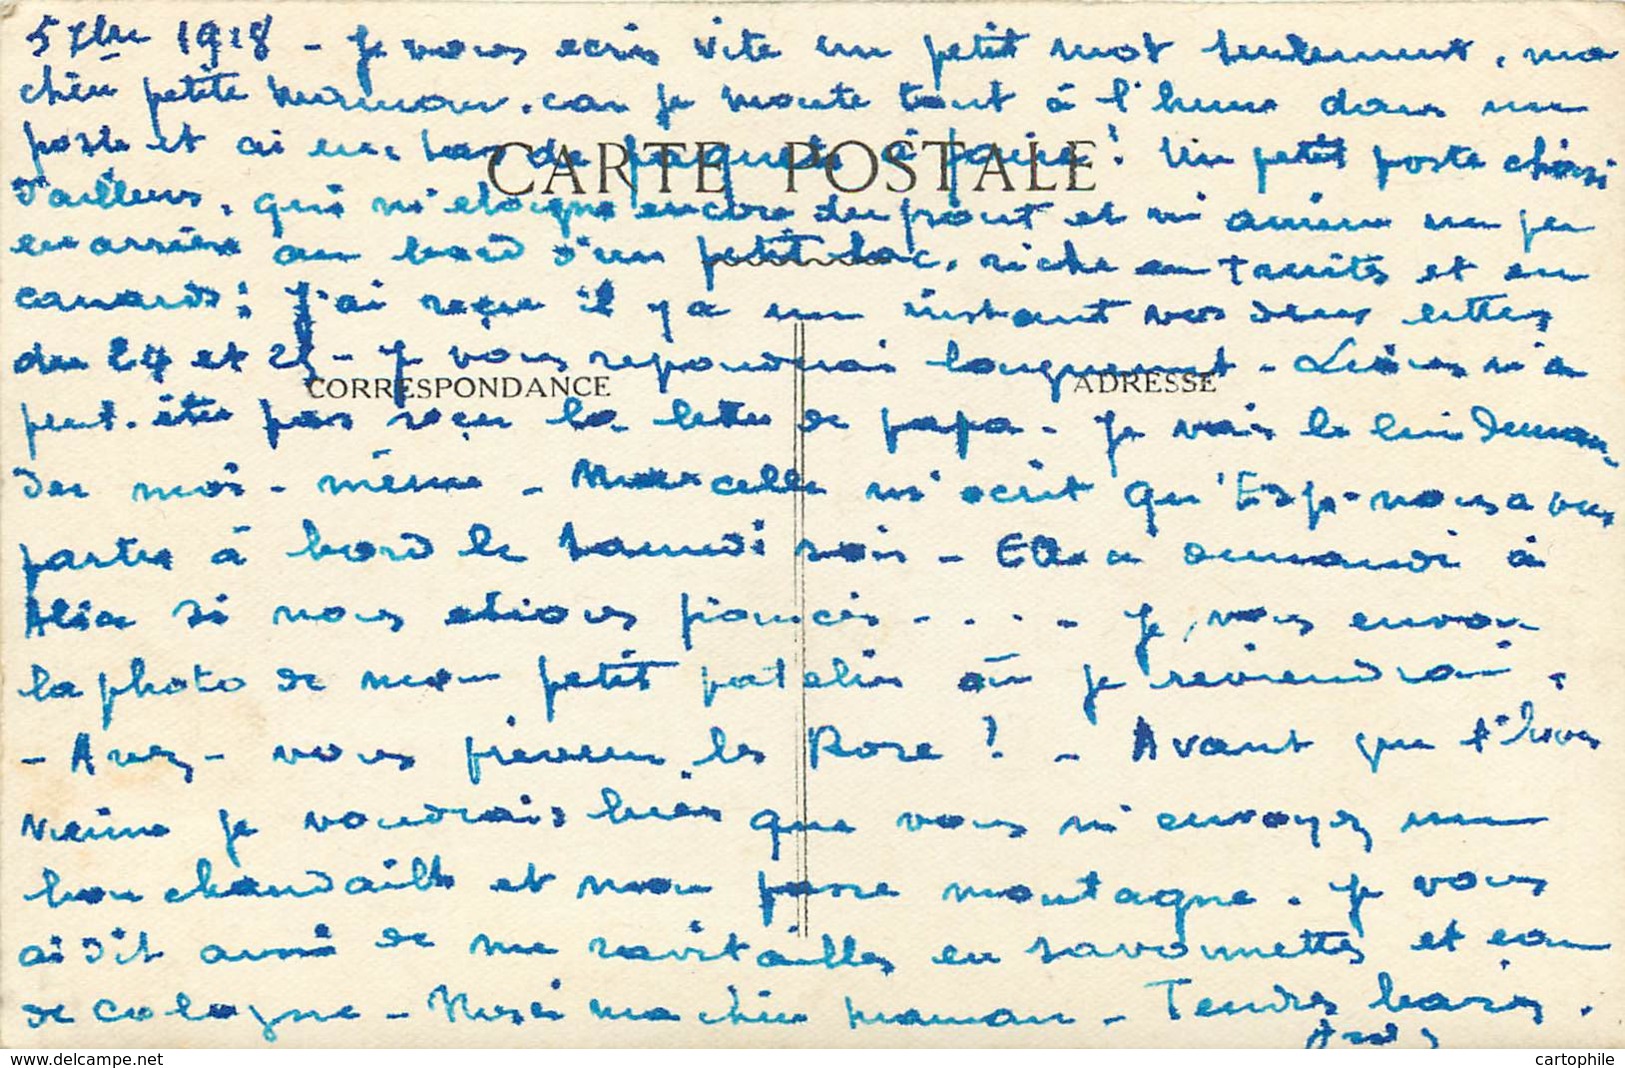 5 7bre 1918 - Je vous ecris vite un petit mot seulement, ma
chère petite maman, car je monte tout à l'heure dans un
poste et ai encore des paquets à faire! Un petit poste choisi
CARTE POSTALE
d'ailleurs, qui m'eloigne encore du front et m'amène un peu
en arrière au bord d'un petit lac, riche en truites et en
canards! J'ai reçu il y a un instant vos deux lettres
du 24 et 25 - Je vous repondrai longuement - n'a
CORRESPONDANCE
ADRESSE
peut-être pas reçu la lettre de papa - Je vais le lui deman-
der moi-même - Marcelle m'ecrit qu'Esp- nous a vus
partir à bord le samedi soir - Elle a demandé à
Alix si nous etions fiancés .... Je vous envoie
la photo de mon petit patelin où je reviendrai.
- Avez-vous prévenu les Rose! - Avant que l'hiver
vienne je voudrais bien que vous m'envoyez un
bon chandaill et mon passe montagne. Je vous
ai dit aussi de me ravitailler en savonnettes et eau
de cologne - Merci ma chère maman - Tendres baisers.
cartophile
www.delcampe.net